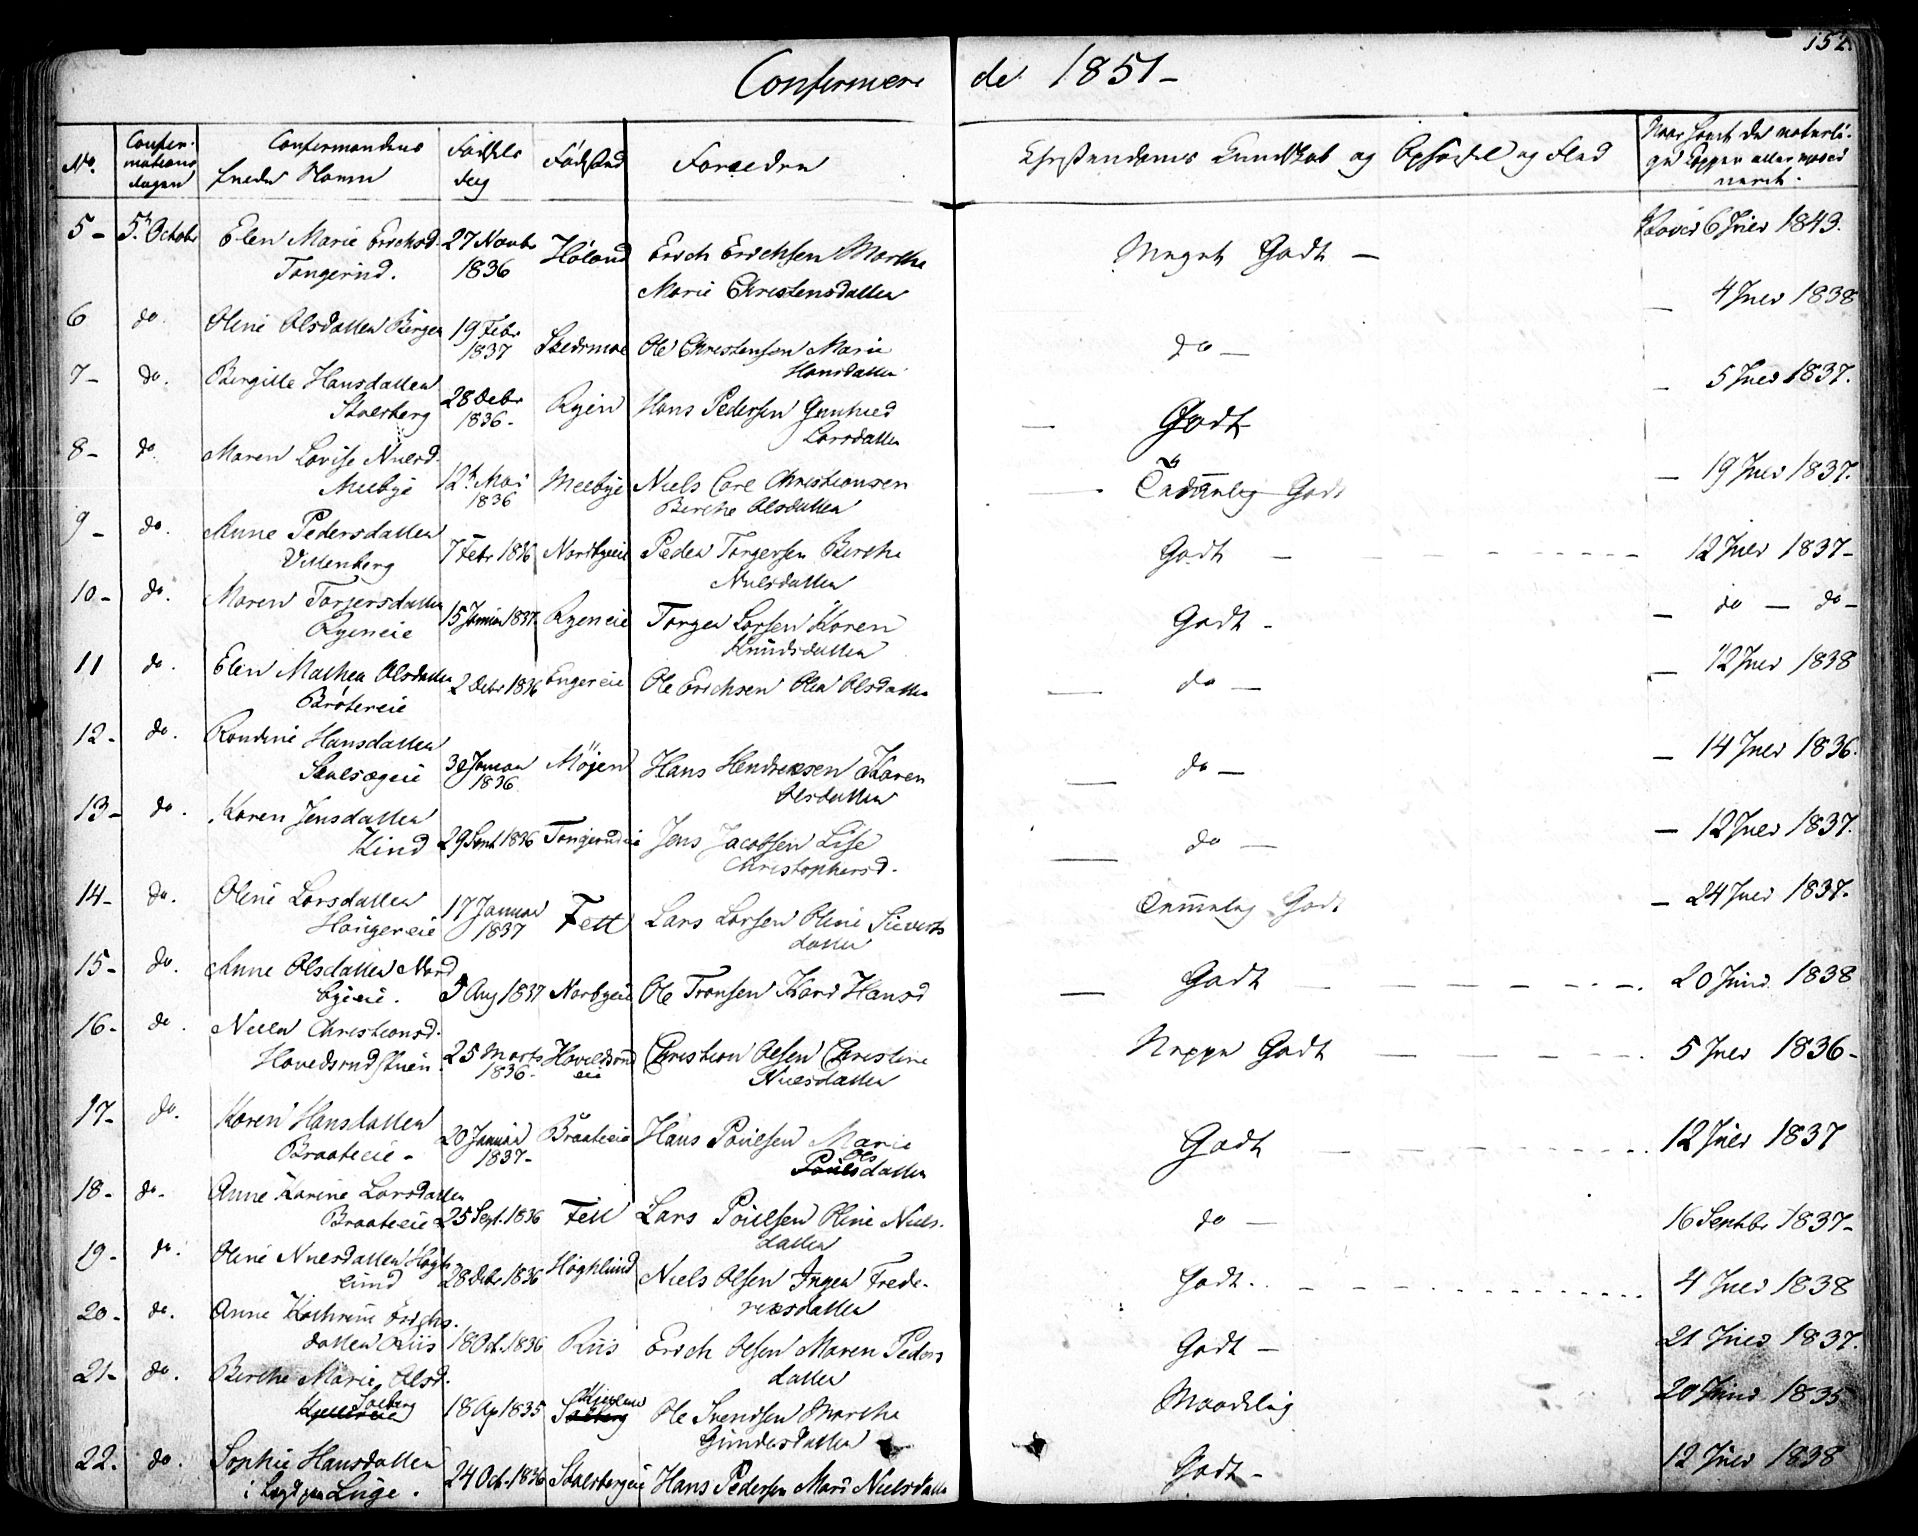 152
Confirmere de 1851 –
No. Confirmations dagen Confirmandens fulde Navn Fødsels dag Fødested Forældre Christendoms Kundskab og Opførsel og Flid Naar havt de naturlige Kopper eller vaccineret.
5 – 5. October Elen Marie Erichsd. Tangerud. 27 Novbr 1836 Høland Erich Erichsen Marthe Marie Christensdatter Meget Godt – 6 Juli 1843.
6 do. Oline Olsdatter Berger 19 Febr 1837 Skedsmoe Ole Christensen Marie Hansdatter do – – 4 Juli 1838
7 – do. Bergitte Hansdatter Stalsberg 28 Debr 1836 – Ryen Hans Pedersen Gunhild Larsdatter – Godt – 5 Juli 1837.
8 – do Maren Lovise Nielsd. Meebye 12. Mai 1836 Meebye Niels Carl Christiansen Berthe Olsdatter – Temmelig Godt – 19 Juli 1837.
9 – do. Anne Pedersdatter Vittenberg 7 Febr 1836 Nordbyeie Peder Torgersen Berthe Nielsdatter Godt – 12 Juli 1837 –
10 – do. Maren Torgersdatter Ryeneie 15 Januar 1837. Ryeneie Torger Larsen Karen Knudsdatter Godt – – do – do –
11 do. Elen Mathea Olsdatter Bråtereie 2 Debr 1836 Engereie Ole Erichsen Olea Olsdatter – do – – 12 Juli 1838
12 – do. Randine Hansdatter 30 Januar 1836 Møjen Hans Hendrichsen Karen Olsdatter – do – – 14 Juli 1836.
13 – do. Karen Jensdatter Kind 29 Sept 1836 Tangerudeie Jens Jacobsen Lise Christophersd. – do – – 12 Juli 1837.
14 – do. Oline Larsdatter Haugereie 17 Januar 1837 Fett Lars Larsen Oline Sievertsdatter Temmelig Godt – 24 Juli 1837.
15 – do. Anne Olsdatter Nordbyeie. 5 Aug 1837 Norbyeie Ole Transen Kari Hansd – Godt – 20 Juni 1838
16 – do. Christiansd. 25 Marts 1836 – Hovelsrud eie Christian Olsen Christine Nielsdatter Neppe Godt – 5 Juli 1836 –
17 – do. Karen Hansdatter Braateeie – 20 Januar 1837 – Braateeie Hans Poulsen Marie Ols Poulsdatter Godt – 12 Juli 1837
18 – do – Anne Karine Larsdatter Braateeie 25 Sept. 1836 Fett Lars Poulsen Oline Nielsdatter do – 16 Septbr 1837 –
19 – do. Oline Nielsdatter Høghlund 28 Debr 1836 Høghlund Niels Olsen Inger Frederiksdatter Godt. 4 Juli 1838
20 – do. Anne Kathrine Erichsdatter Riis 18 Oct. 1836 Riis Erich Olsen Maren Pedersdatter Godt – 21 Juli 1837.
21 – do. Berthe Marie Olsd. Solberg 18 Ap 1835 Solberg Ole Svendsen Marthe Gundersdatter Maadelig 20 Juni 1835
22. do. Sophie Hansdatter i Lægd paa Luge. 24 Oct. 1836 Stalsbergeie Hans Pedersen Mari Nielsdatter Godt – 12 Juli 1838